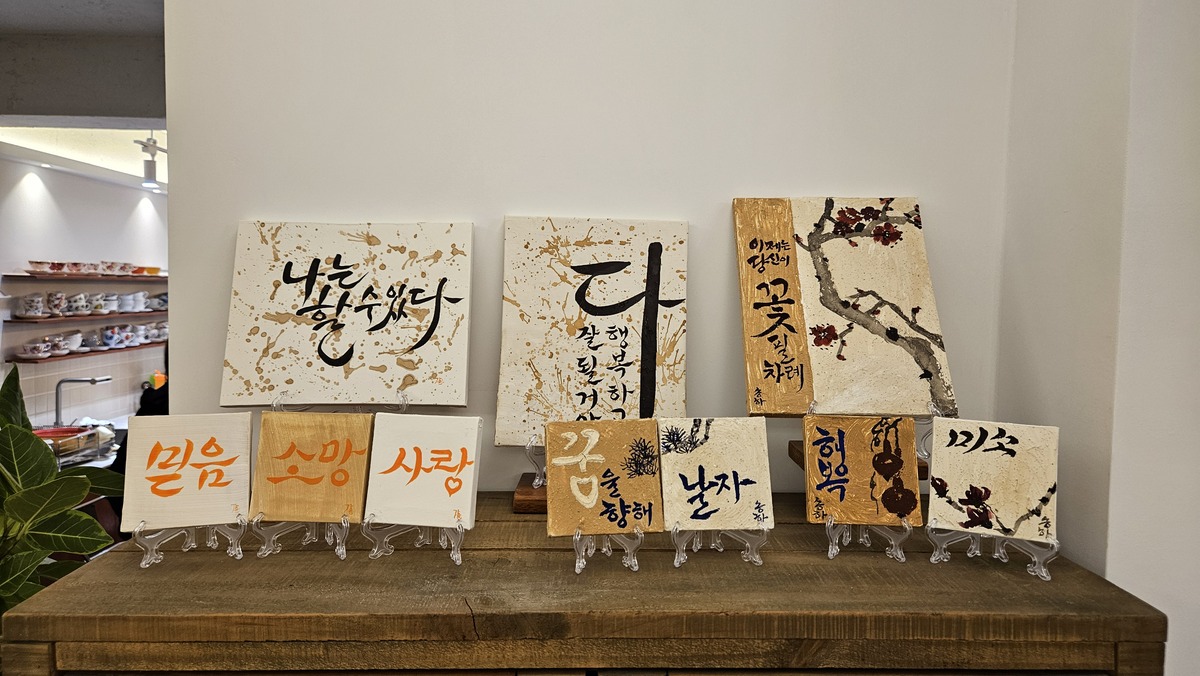 나는
할 수 있다
다
행복하고
잘 될 거야
이제는
당신이
꽃
필
차례
송하
믿음
소망
사랑
꿈
을
향해
날자
송하
행복
송하
미소
송하